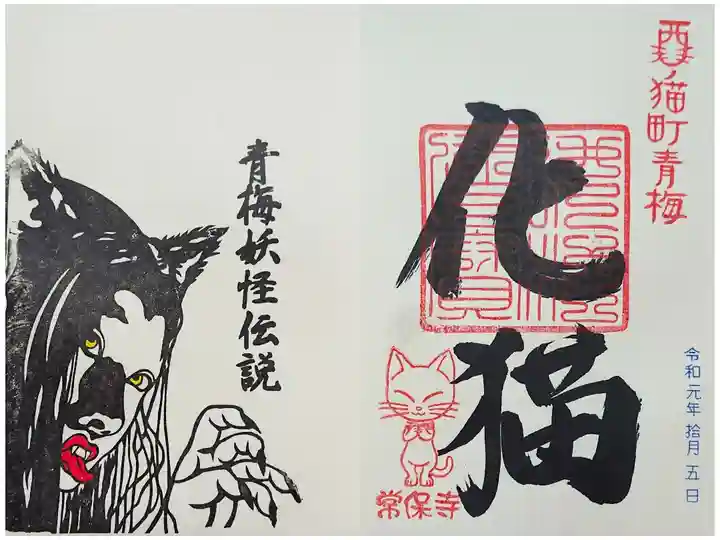 酉ノ猫町青梅
化猫
令和元年 拾月 五日
常保寺
青梅妖怪伝説